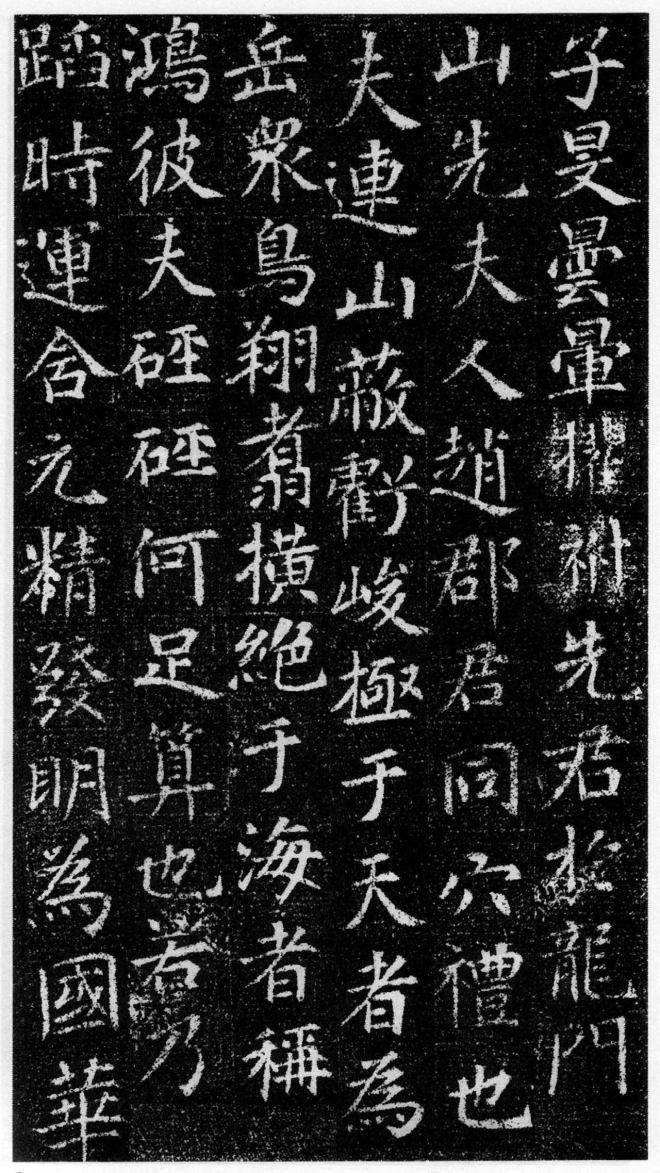 子旻曇暈擢祔先君於龍門
山先夫人趙郡君同穴禮也
夫連山蔽虧峻極于天者為
岳眾鳥翔翥橫絕于海者稱
鴻彼夫硜硜何足算也若乃
蹈時運含元精發明為國華